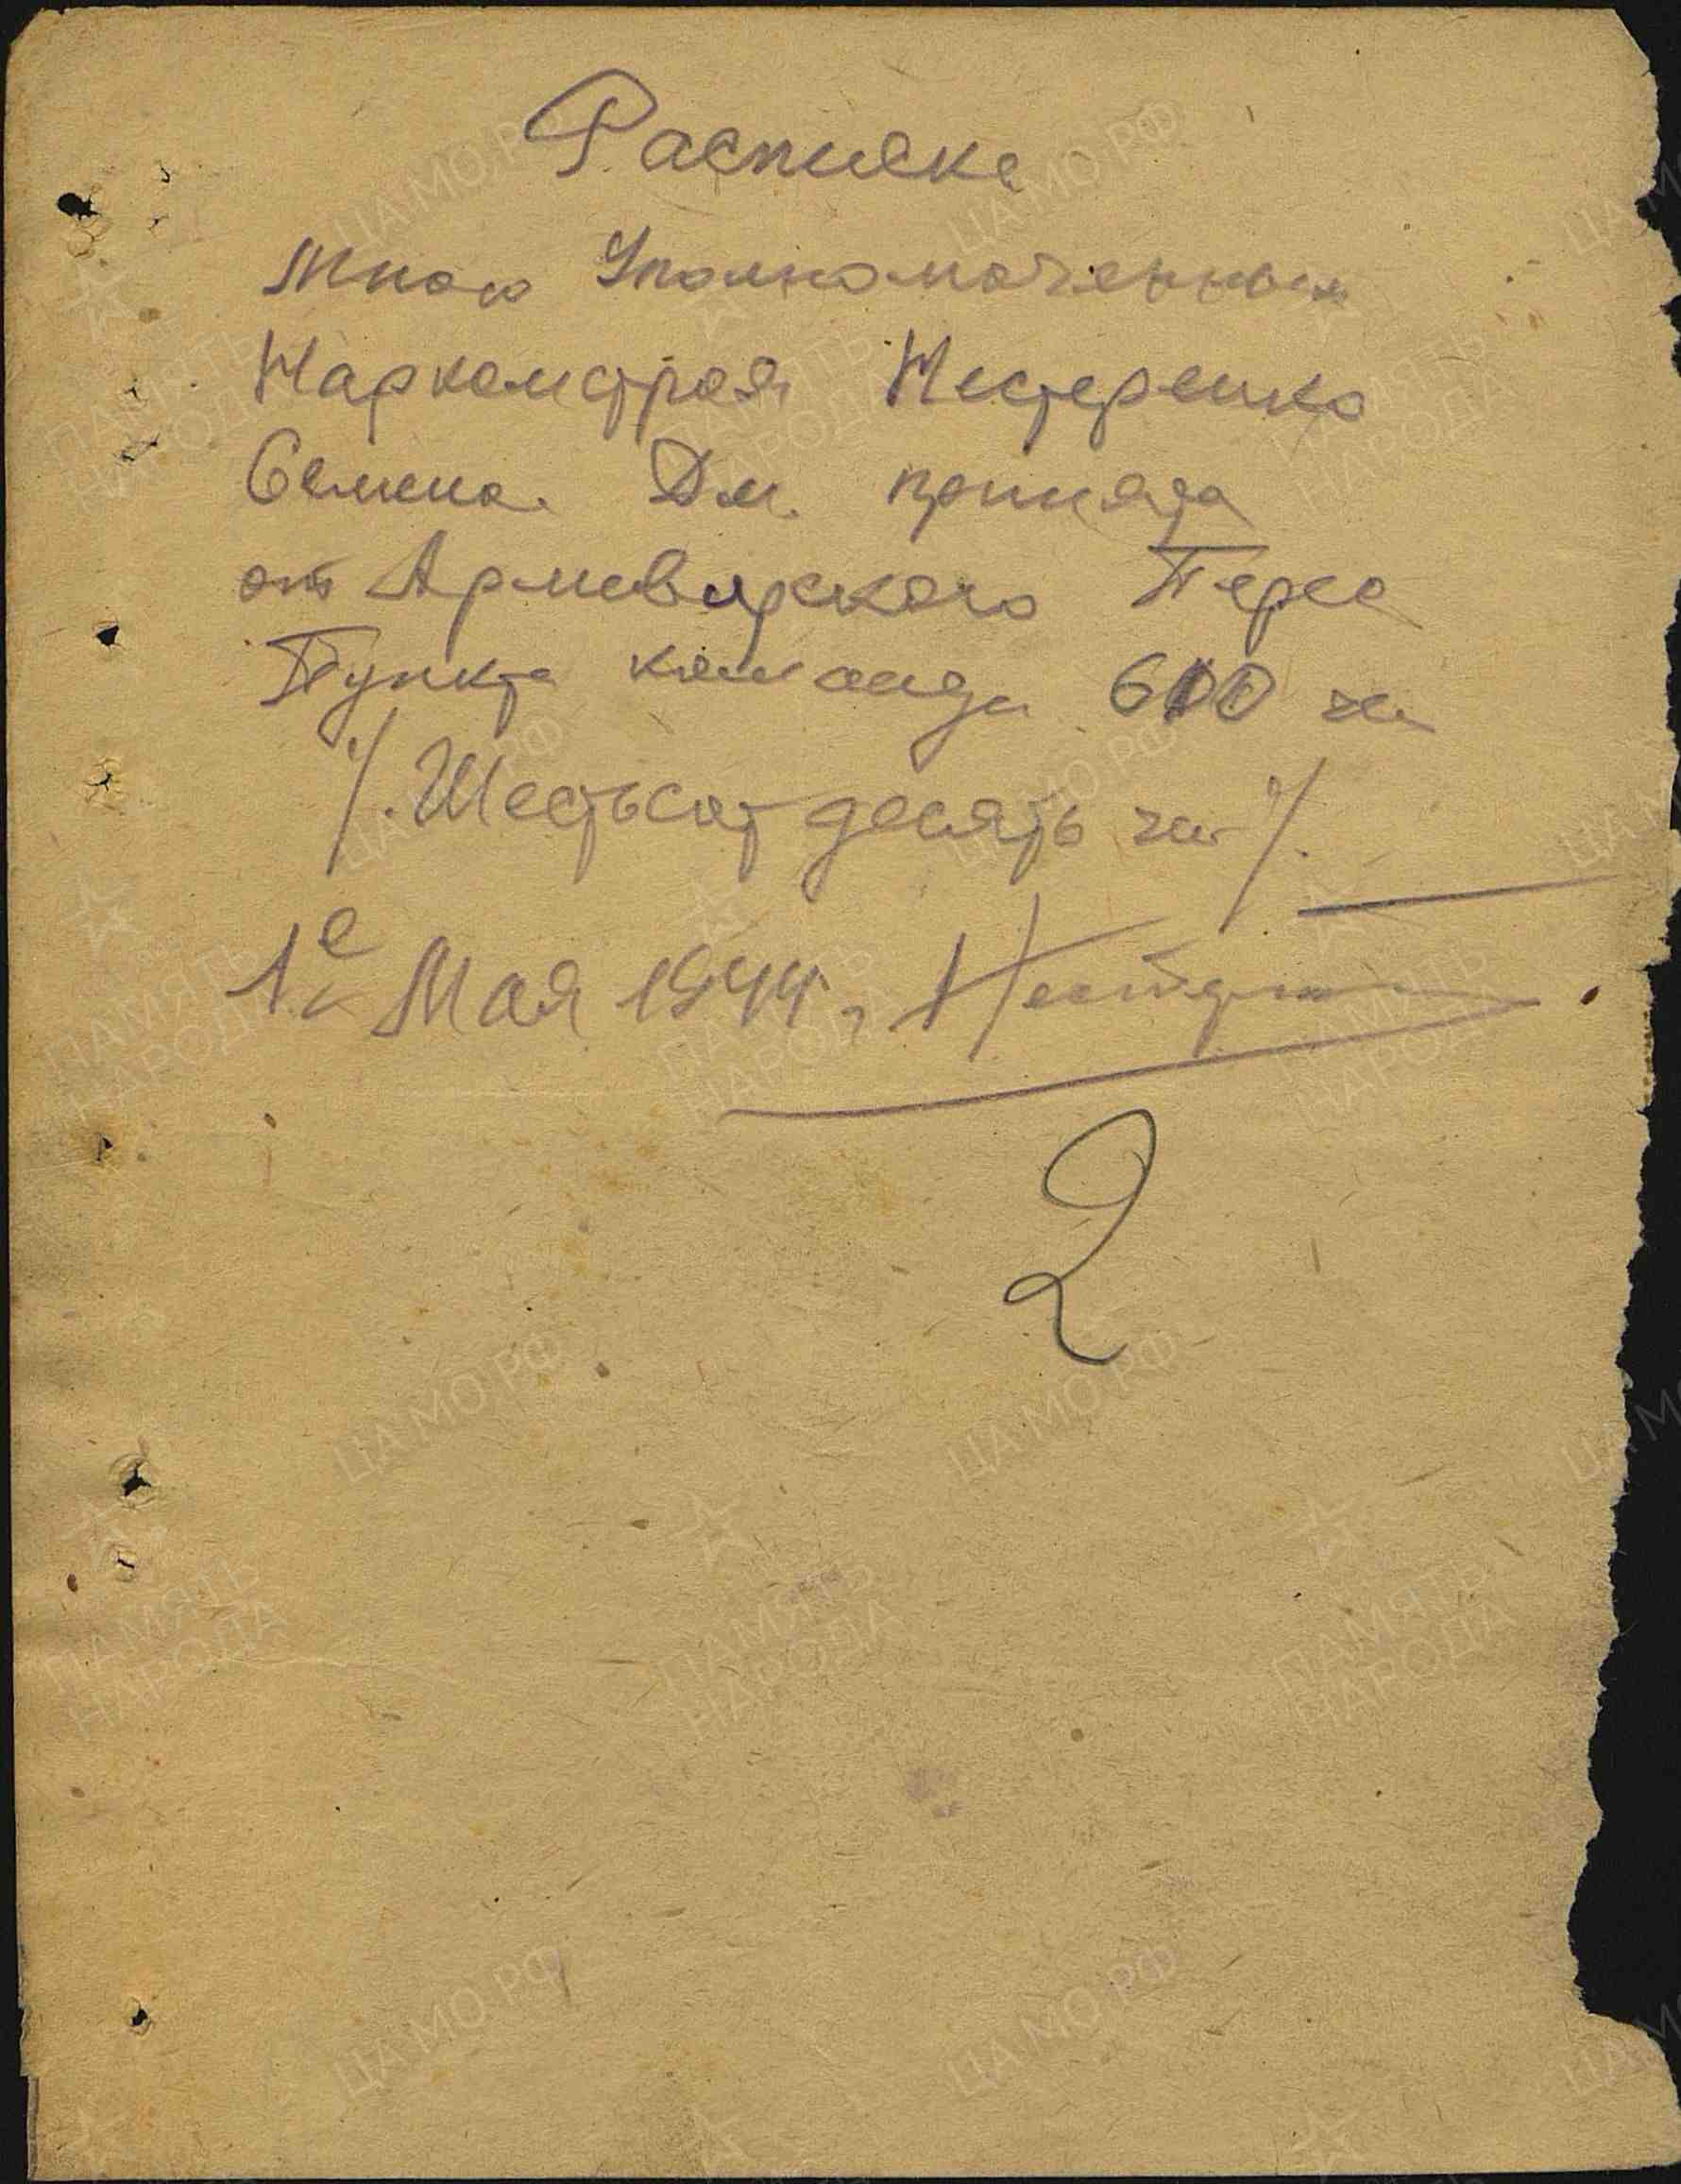 Расписка
Мною Уполномоченным
Наркомстроя Нестеренко
Семена Дм. принята
от Армавирского Пере
Пункта команда 610 чел
/. Шестьсот десять чел /.
1е Мая 1944 г. Нестеренко
2